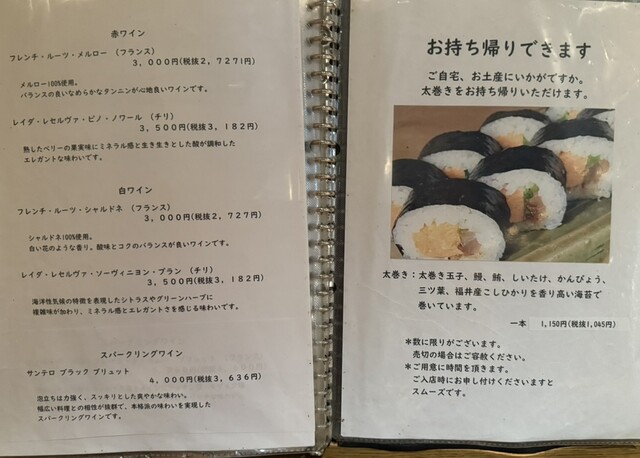 赤ワイン
フレンチ・ルーツ・メルロー （フランス）
3，000円(税抜2，7271円)
メルロー100%使用。
バランスの良いなめらかなタンニンが心地良いワインです。
レイダ・レセルヴァ・ピノ・ノワール （チリ）
3，500円(税抜3，182円)
熟したベリーの果実味にミネラル感と生き生きとした酸が調和した
エレガントな味わいです。
白ワイン
フレンチ・ルーツ・シャルドネ （フランス）
3，000円(税抜2，727円)
シャルドネ100%使用。
白い花のような香り。酸味とコクのバランスが良いワインです。
レイダ・レセルヴァ・ソーヴィニヨン・ブラン （チリ）
3，500円(税抜3，182円)
海洋性気候の特徴を表現したシトラスやグリーンハーブに
複雑味が加わり、ミネラル感とエレガントさを感じる味わいです。
スパークリングワイン
サンテロ ブラック ブリュット
4，000円(税抜3，636円)
泡立ちは力強く、スッキリとした爽やかな味わい。
幅広い料理との相性が抜群で、本格派の味わいを実現した
スパークリングワインです。
お持ち帰りできます
ご自宅、お土産にいかがですか。
太巻きをお持ち帰りいただけます。
太巻き：太巻き玉子、鰻、鮪、しいたけ、かんぴょう、
三ツ葉、福井産こしひかりを香り高い海苔で
巻いています。
一本 1,150円(税抜1,045円)
＊数に限りがございます。
売切の場合はご容赦ください。
＊ご用意に時間を頂きます。
ご入店時にお申し付けくださいますと
スムーズです。